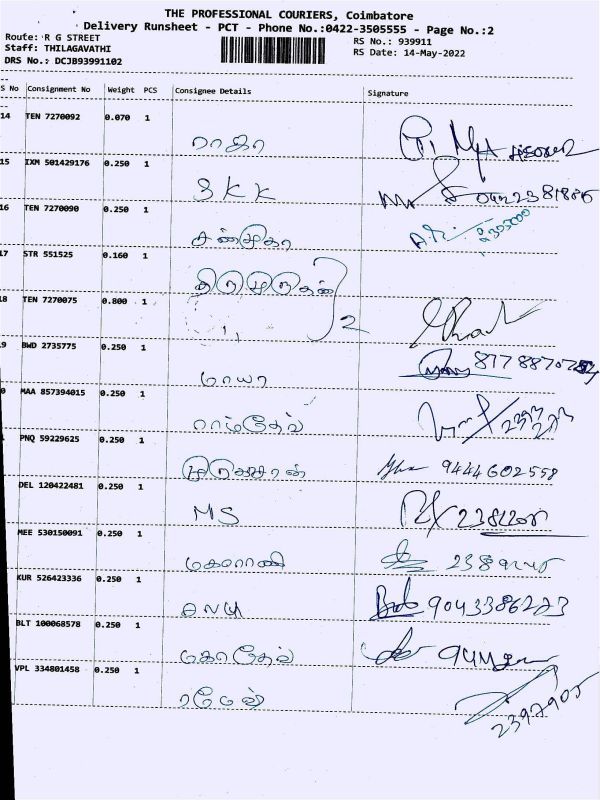 THE PROFESSIONAL COURIERS, Coimbatore
Delivery Runsheet - PCT - Phone No.:0422-3505555 - Page No.:2
Route: R G STREET
RS No.: 939911
Staff: THILAGAVATHI
RS Date: 14-May-2022
DRS No.: DCJB93991102
S No Consignment No Weight PCS Consignee Details Signature
14 TEN 7270092 0.070 1
ராதா
15 IXM 501429176 0.250 1
SKK
16 TEN 7270090 0.250 1
சண்முகா
17 STR 551525 0.160 1
திருமுருகன்
18 TEN 7270075 0.800 1
" 2
9 BWD 2735775 0.250 1
மாயா
0 MAA 857394015 0.250 1
ராம்தேவ்
PNQ 59229625 0.250 1
9444602558
DEL 120422481 0.250 1
MS
MEE 530150091 0.250 1
மகாராணி
KUR 526423336 0.250 1
9043386273
BLT 100068578 0.250 1
VPL 334801458 0.250 1
ரமேஷ்
2397905